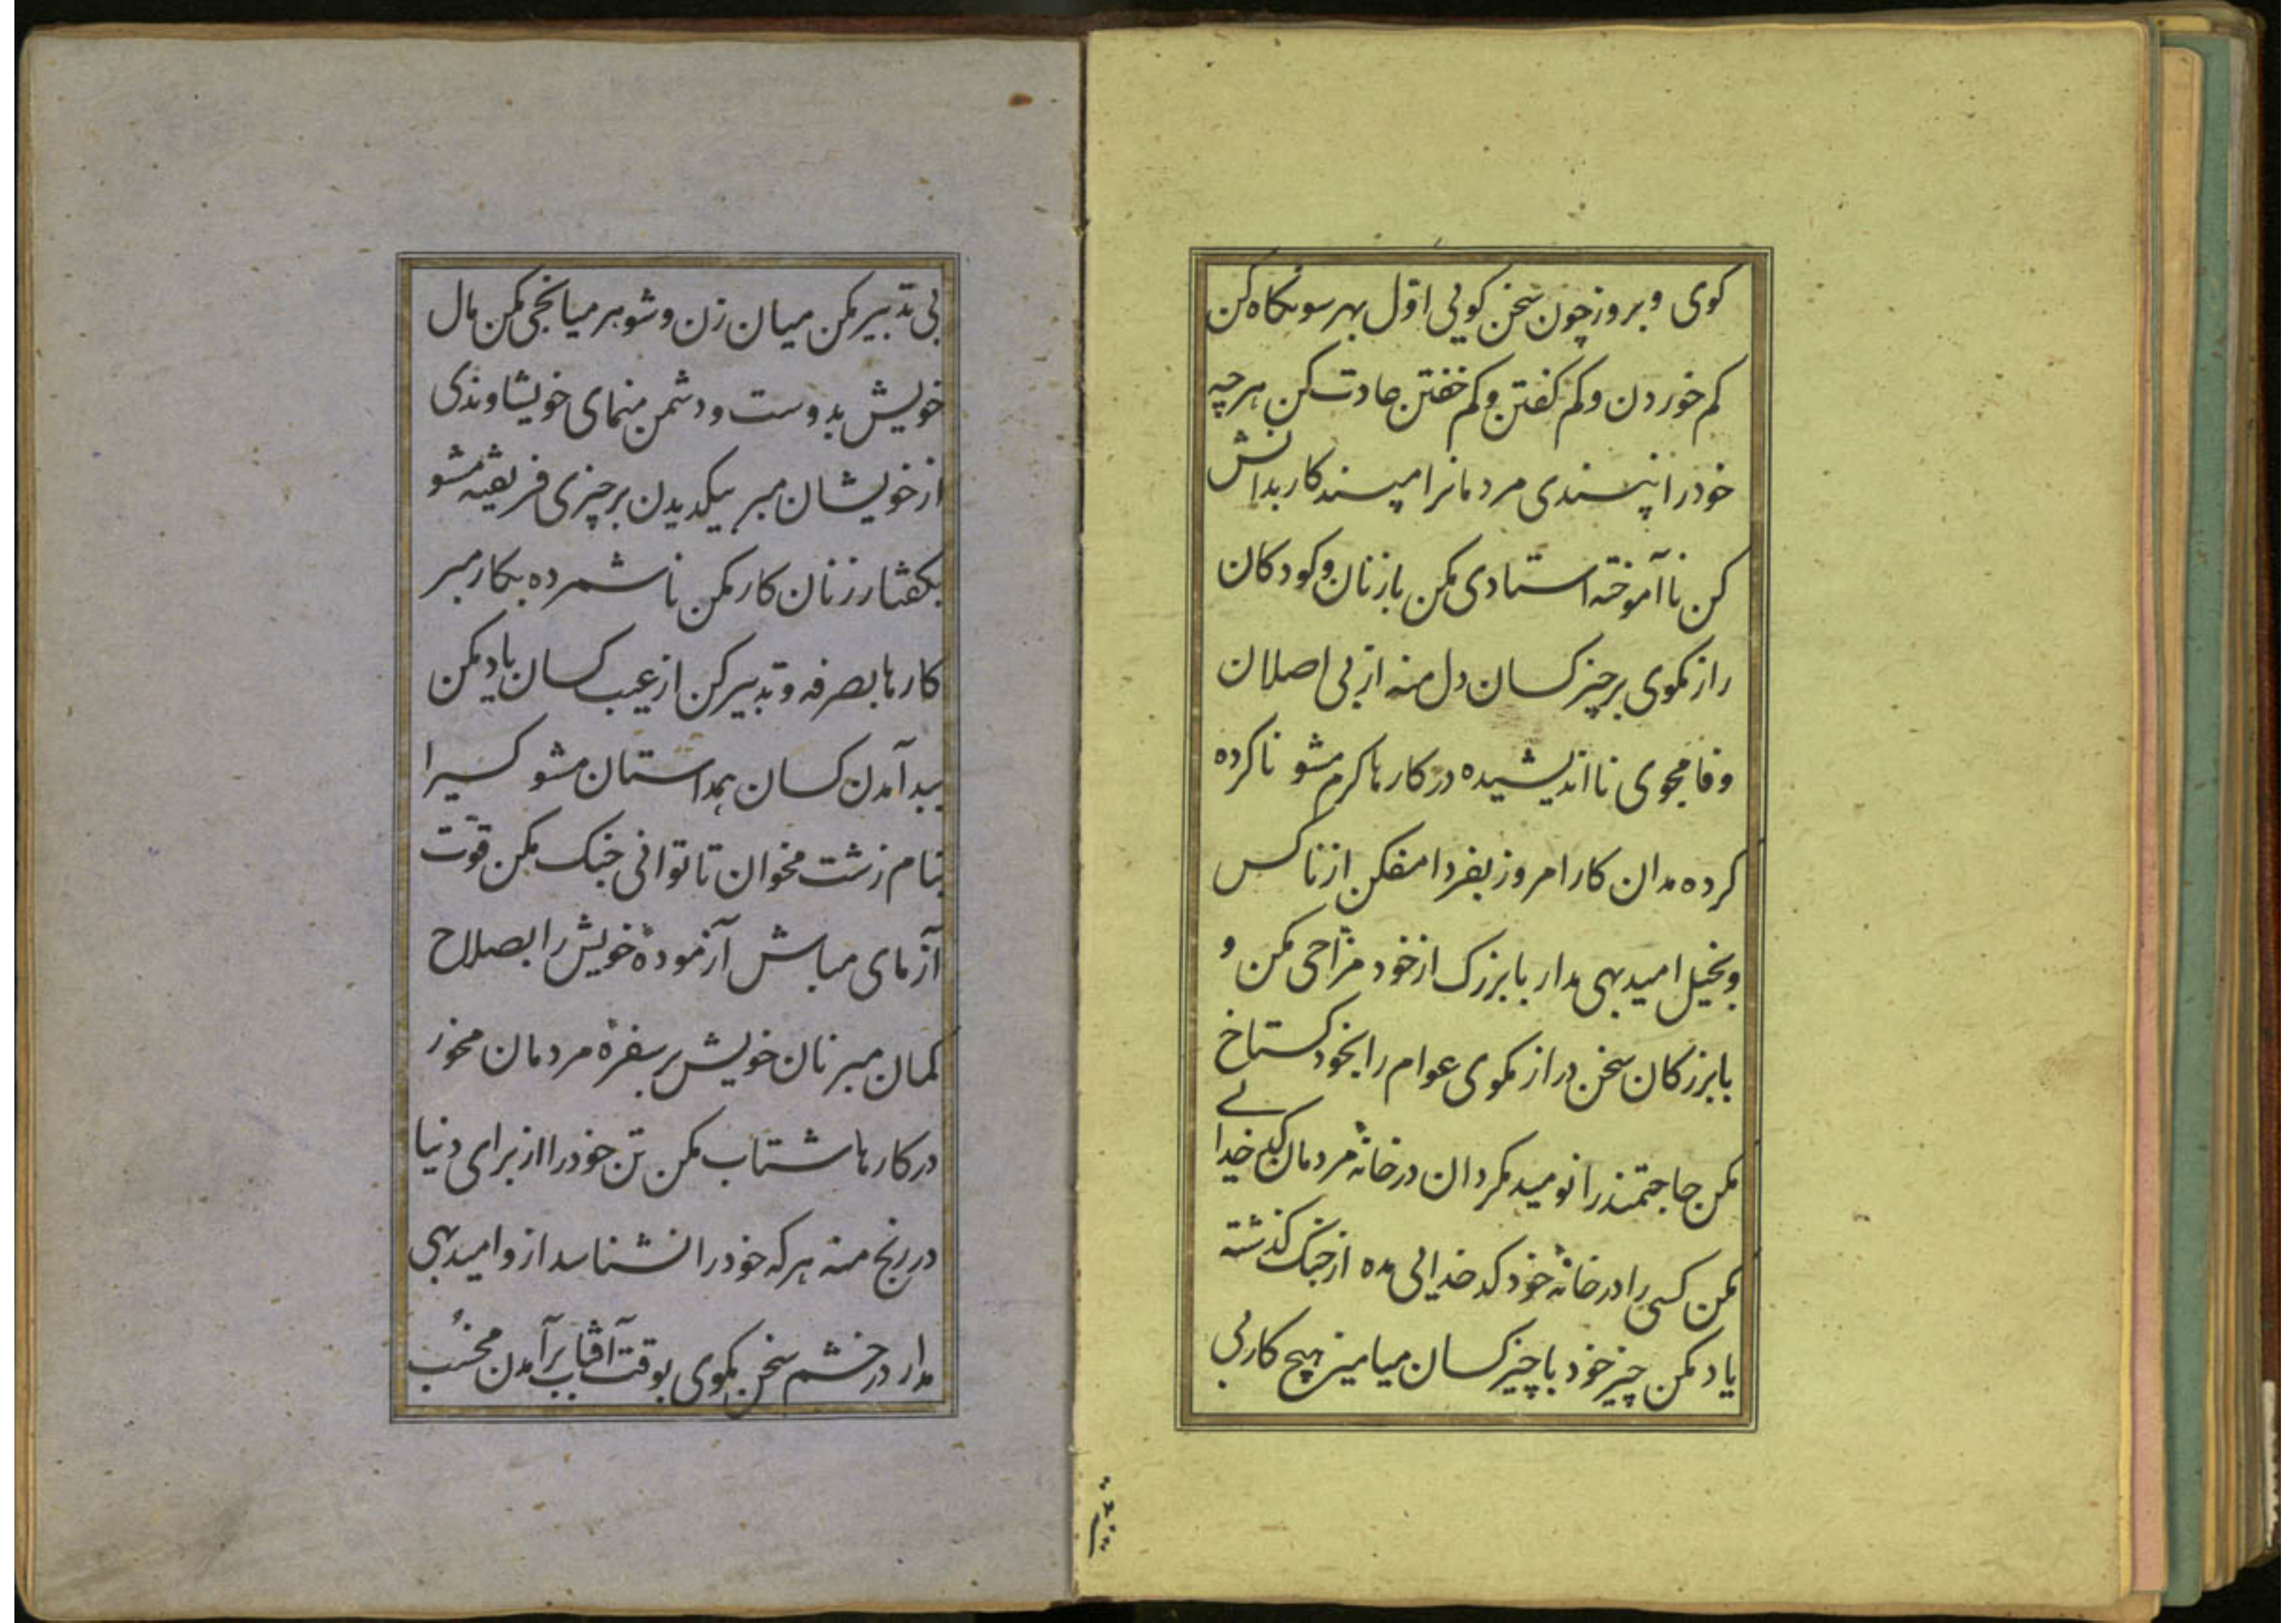 کوی و بروز چون سخن کویی اول بهر سو نکاه کن
کم خوردن و کم کفتن و کم خفتن عادت کن هر چه
خود را نپسندی مردمانرا مپسند کار بدانش
کن ناآموخته استادی مکن با زنان و کودکان
راز مکوی بر چیز کسان دل منه از بی اصلان
وفا مجوی نااندیشیده در کارها کرم مشو ناکرده
کرده مدان کار امروز بفردا مفکن از ناکس
و بخیل امید بهی مدار با بزرک از خود مزاحی مکن و
با بزرکان سخن دراز مکوی عوام را بخود کستاخ
مکن حاجتمند را نومید مکردان در خانه مردمان کدخدایی
مکن کسی را در خانه خود کدخدایی مده از جنک کذشته
یاد مکن چیز خود با چیز کسان میامیز هیچ کار بی
بی تدبیر مکن میان زن و شوهر میانجی مکن مال
خویش بدوست و دشمن منمای خویشاوندی
از خویشان مبر بیکدیدن بر چیزی فریفته مشو
بکفتار زنان کار مکن ناشمرده بکار مبر
کارها بصرفه و تدبیر کن از عیب کسان یاد مکن
ببد آمدن کسان همداستان مشو کسیرا
بنام زشت مخوان تا توانی جنک مکن قوّت
آزمای مباش آزمودهٔ خویش را بصلاح
کمان مبر نان خویش بر سفرهٔ مردمان مخور
در کارها شتاب مکن تن خود را از برای دنیا
در رنج منه هر که خود را نشناسد از و امید بهی
مدار در خشم سخن مکوی بوقت آفتاب برآمدن مخسُب